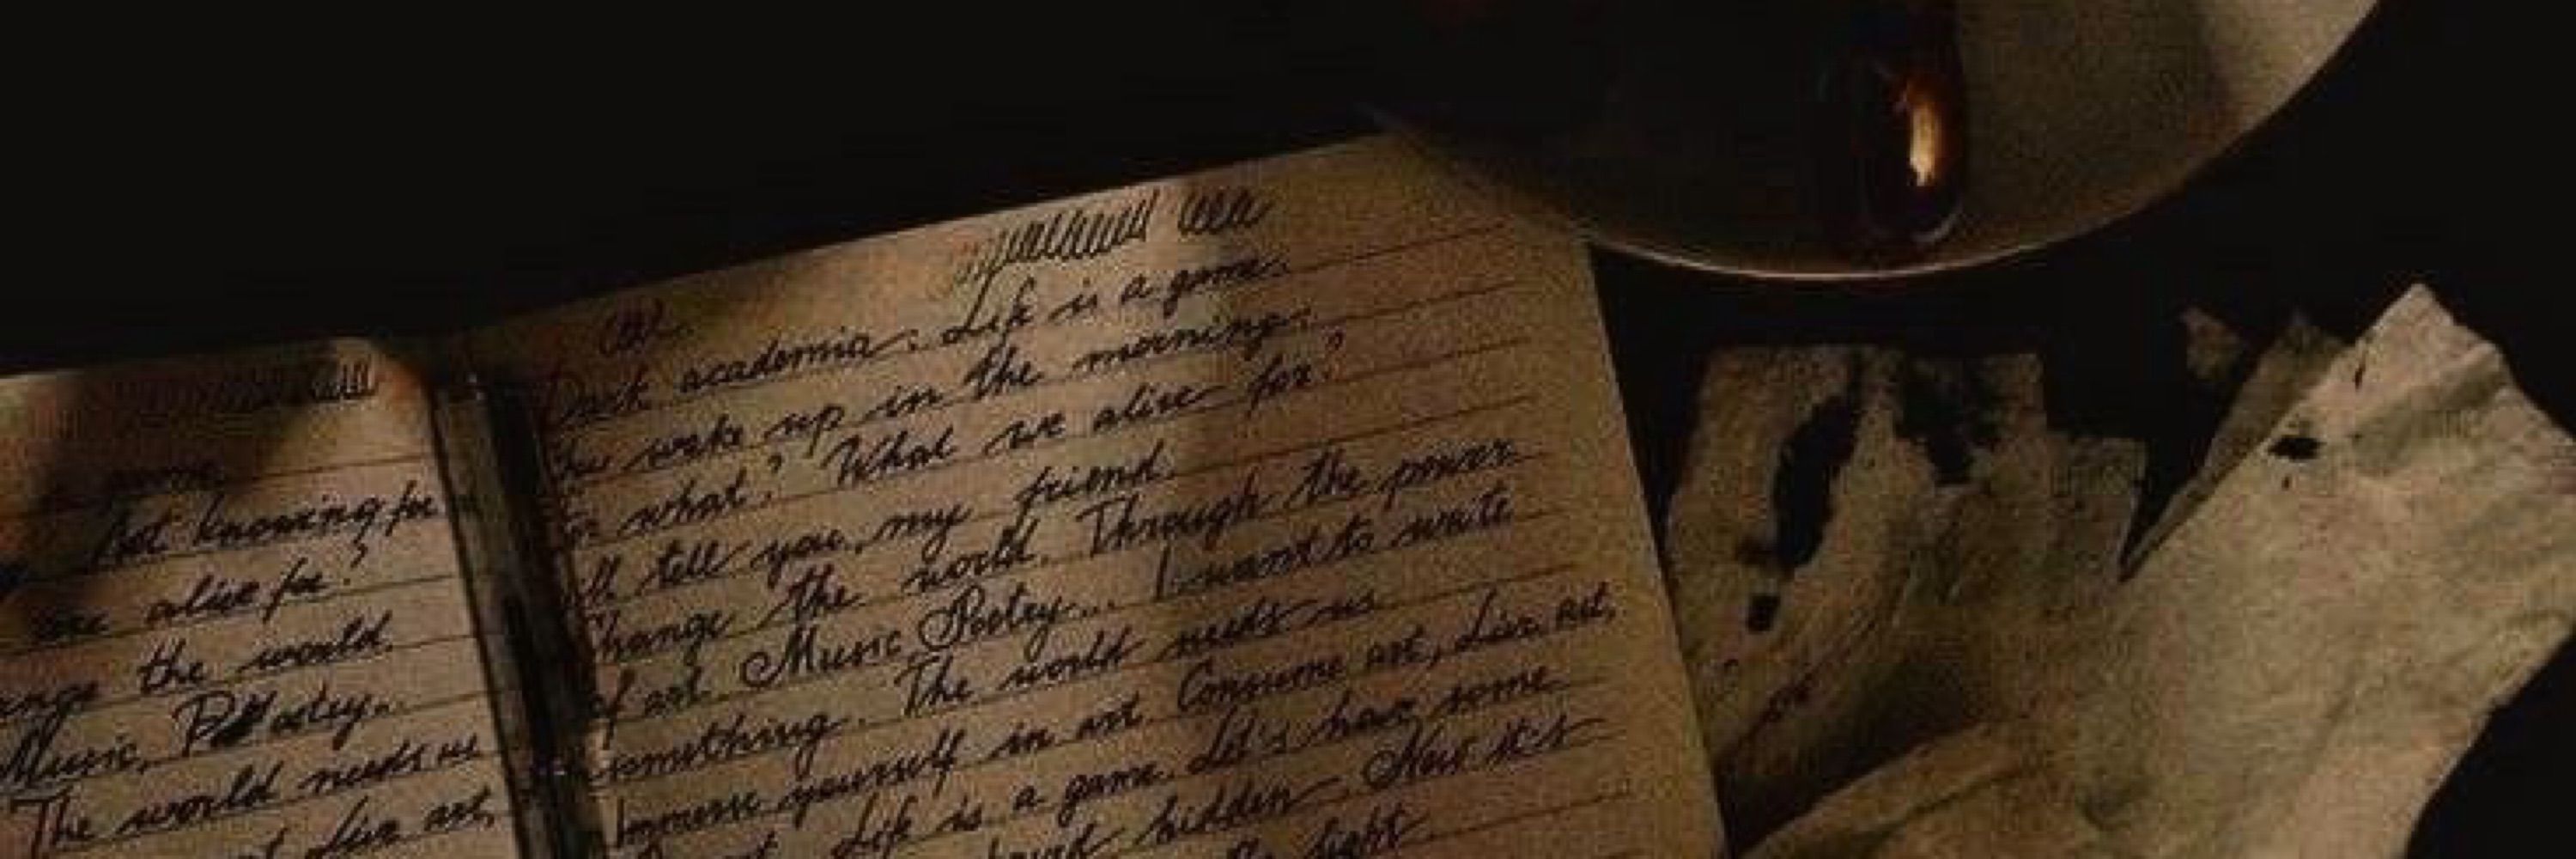 not knowing for
are alive for?
the world.
Music, Poetry..
The world needs us
Live art,
Dark academia: Life is a game.
You wake up in the morning.
For what? What we alive for?
I'll tell you, my friend
Change the world. Through the power
of art. Music, Poetry... I want to write
something. The world needs us
Immerse yourself in art. Consume art, Live art,
Life is a game. Let's have some
hidden. Now it's
light